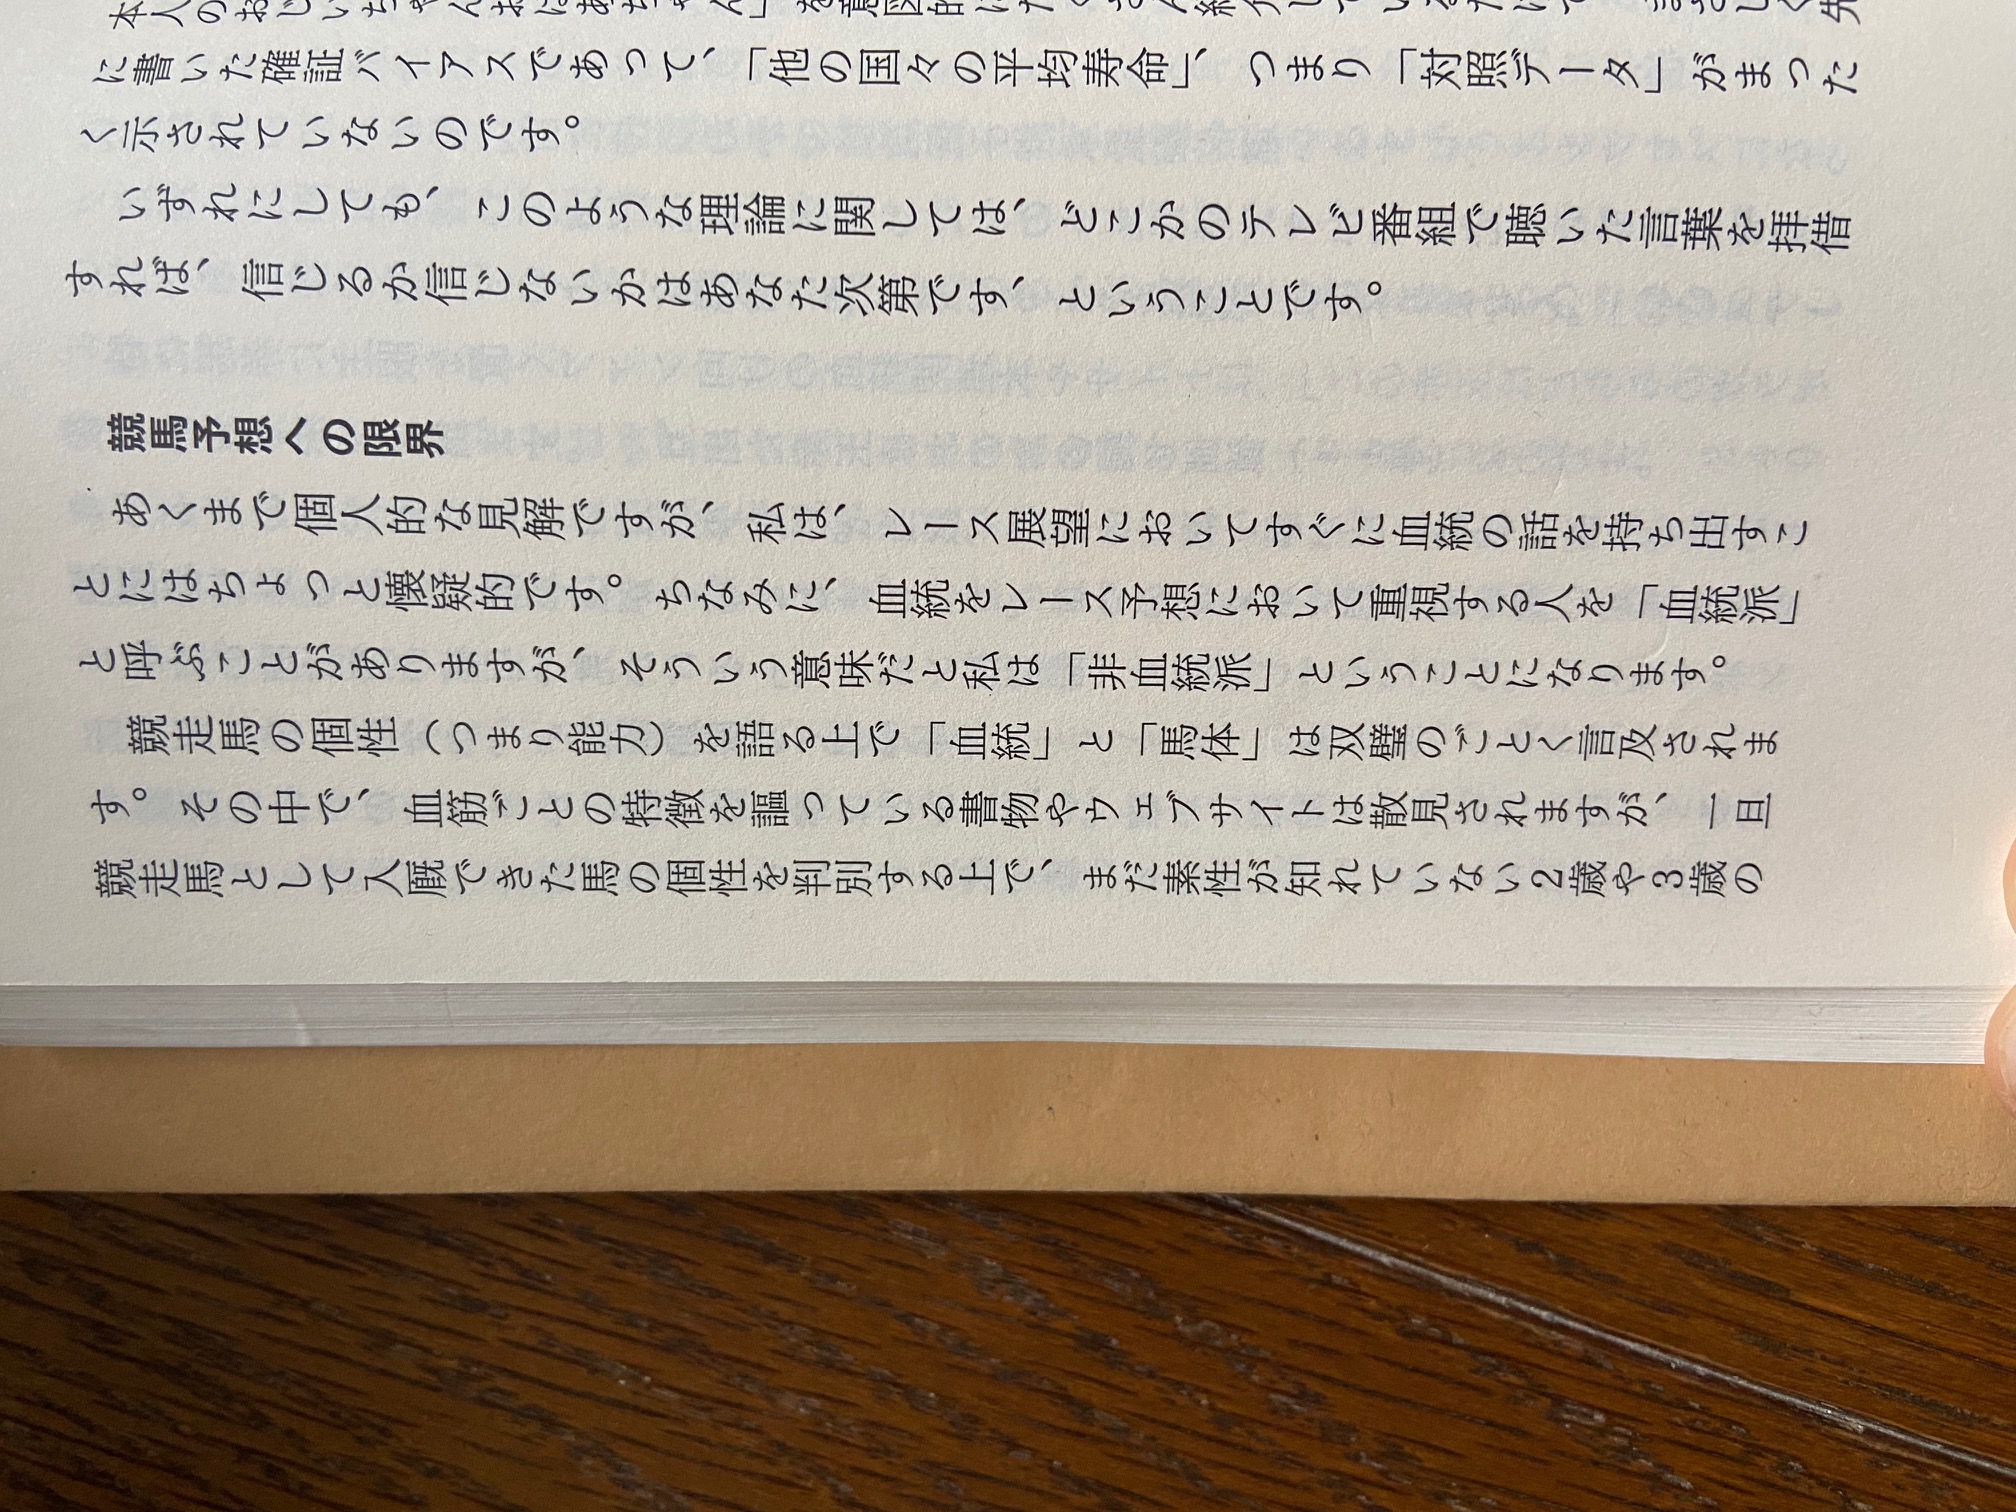 本人のおじいちゃんおばあちゃん」を意図的にたくさん紹介しているだけで、まさしく先
に書いた確証バイアスであって、「他の国々の平均寿命」、つまり「対照データ」がまった
く示されていないのです。
いずれにしても、このような理論に関しては、どこかのテレビ番組で聴いた言葉を拝借
すれば、信じるか信じないかはあなた次第です、ということです。
競馬予想への限界
あくまで個人的な見解ですが、私は、レース展望においてすぐに血統の話を持ち出すこ
とにはちょっと懐疑的です。ちなみに、血統をレース予想において重視する人を「血統派」
と呼ぶことがありますが、そういう意味だと私は「非血統派」ということになります。
競走馬の個性（つまり能力）を語る上で「血統」と「馬体」は双璧のごとく言及されま
す。その中で、血筋ごとの特徴を謳っている書物やウェブサイトは散見されますが、一旦
競走馬として入厩できた馬の個性を判別する上で、まだ素性が知れていない2歳や3歳の